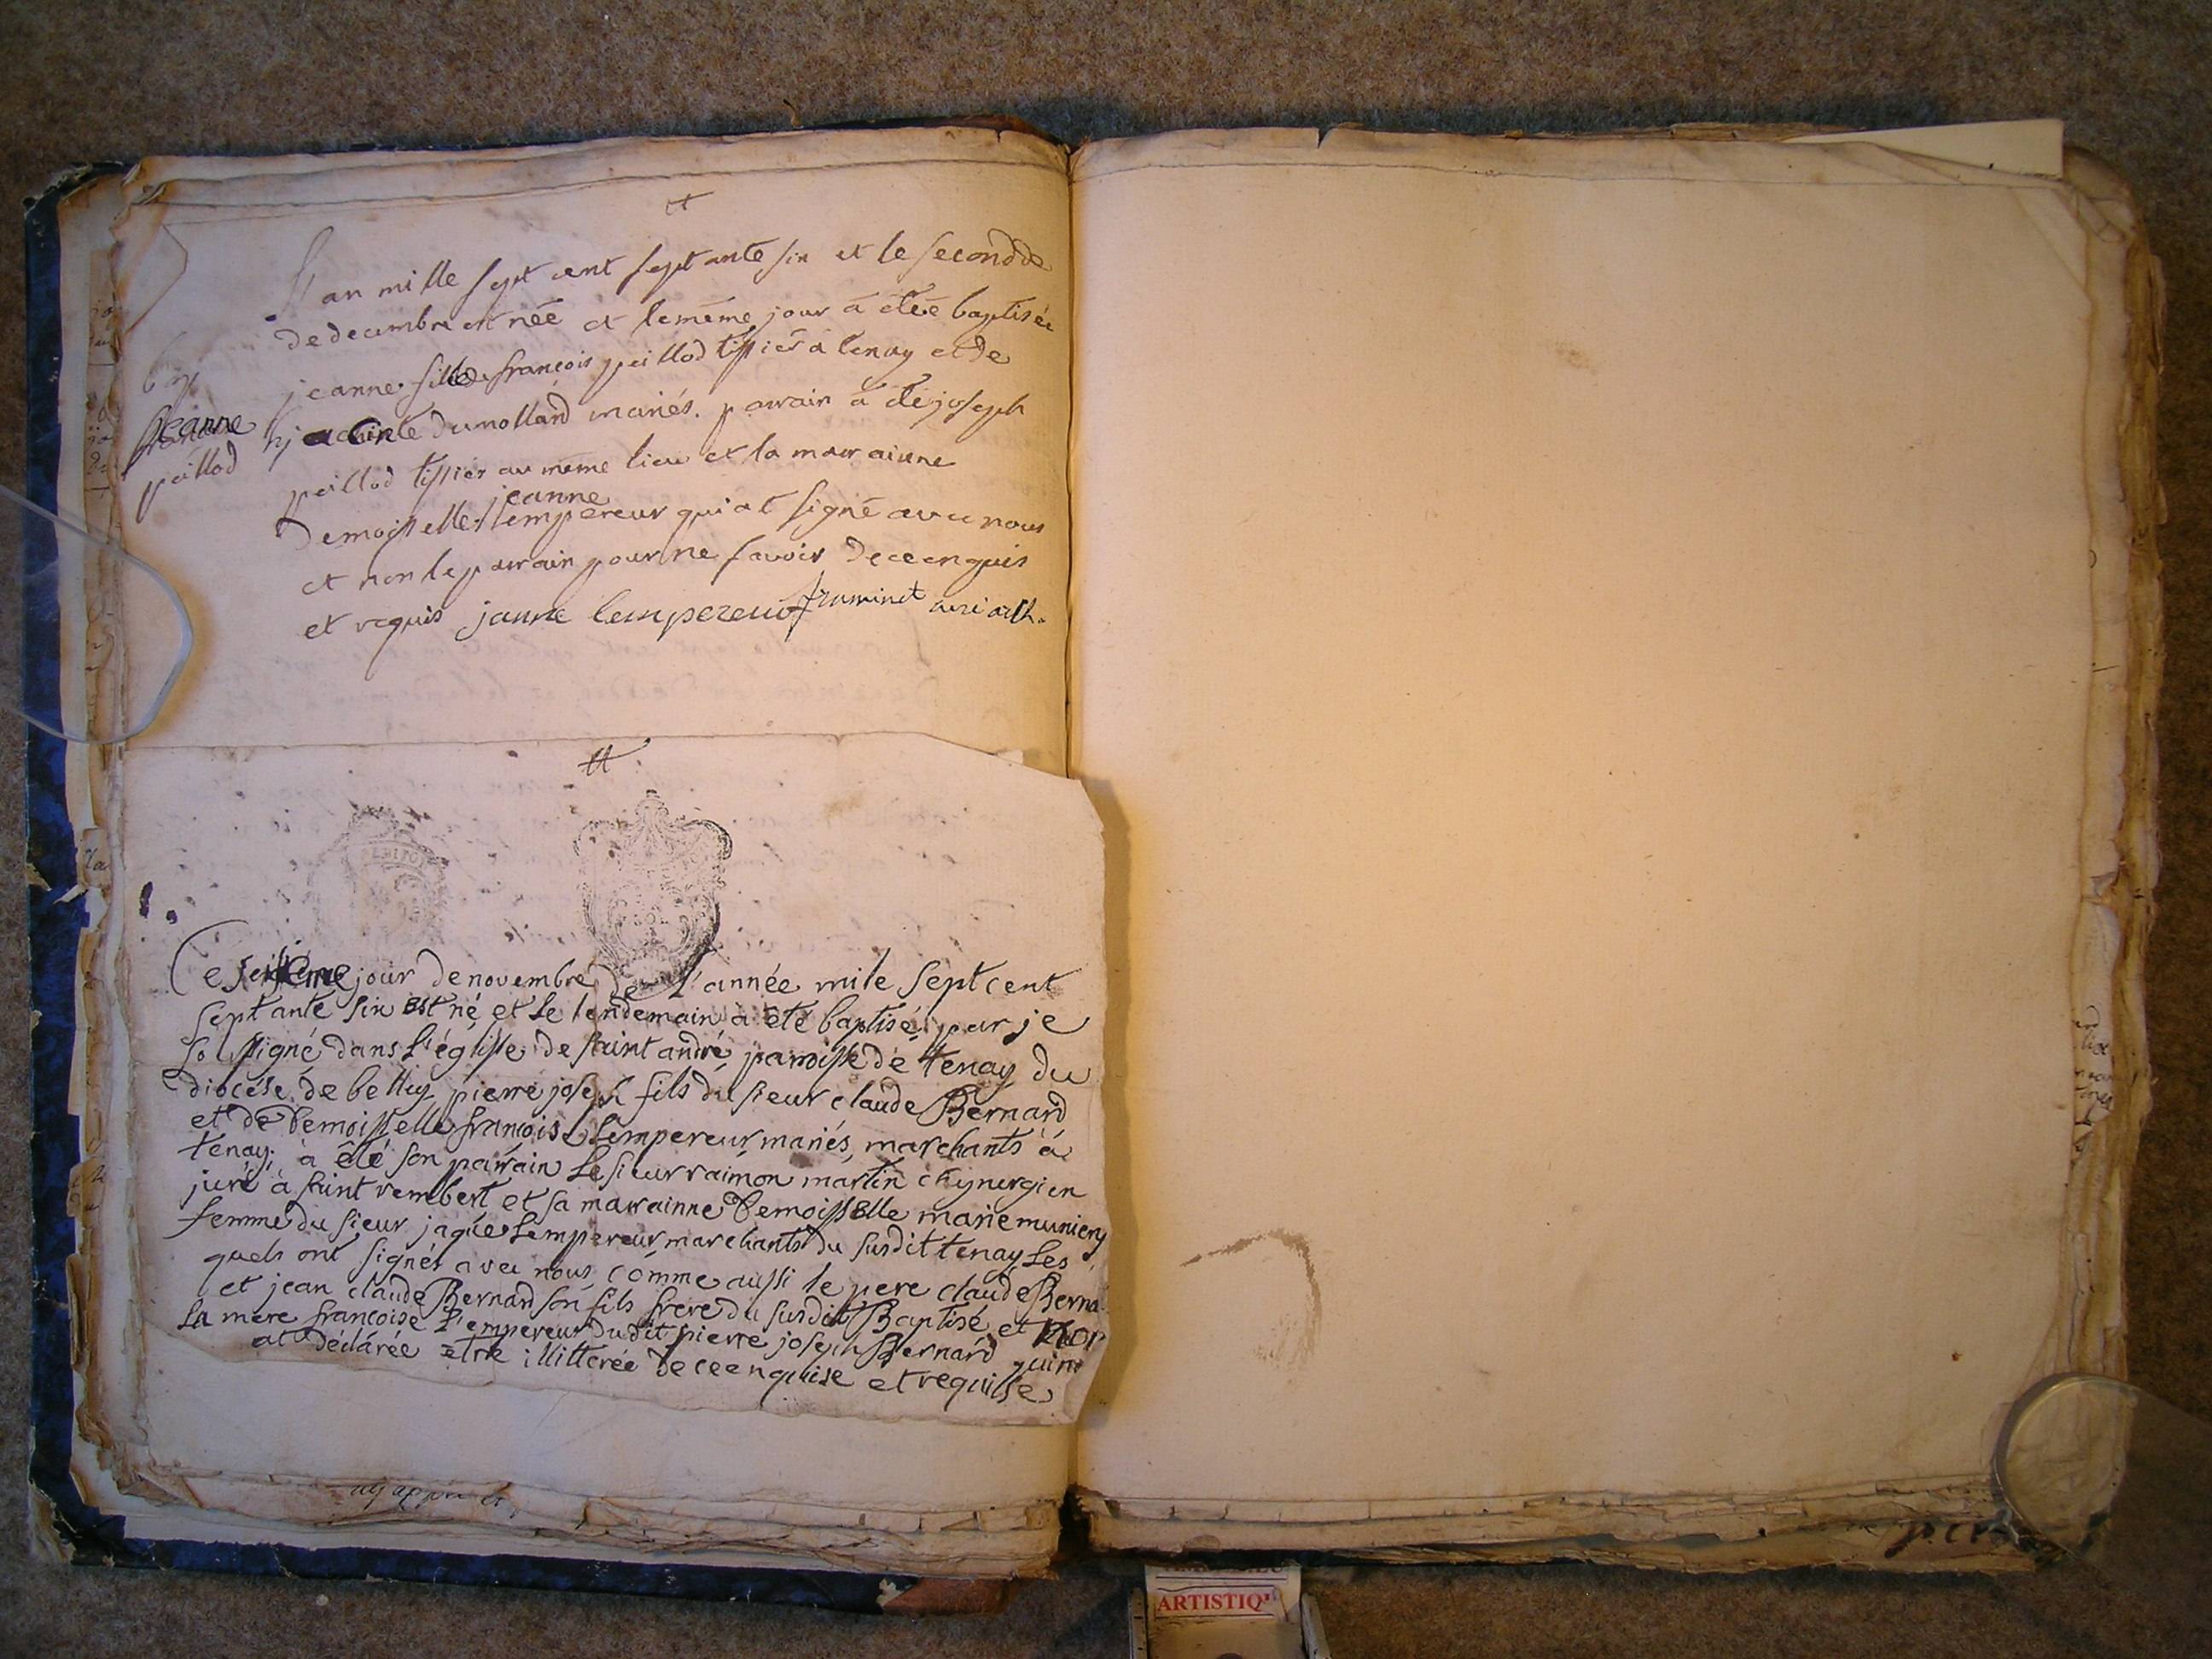 L'an mille sept cent septante six et le second de
de decembre est née et le même jour à étée baptisée
jeanne fille de françois peillod tissier à tenay et de
hjacinte dumollard mariés. parrain à été joseph
peillod tissier au même lieu et la marrainne
jeanne
Demoisselle lempereur qui at signé avec nous
et non le parrain pour ne savoir de ce enquis
et requis janne lempereur fruminet curé arch.
bap
jeanne
peillod
Ce seisieme jour de novembre de l'année mile sept cent
septante six est né et le lendemain à été baptisé par je
soussigné dans l'églisse de saint andré paroisse de tenay du
diocése de belley pierre joseph fils du sieur claude Bernard
et de Demoisselle françoise Lempereur mariés, marchants à
tenay; à été son parrain Le sieur raimon martin chynergien
juré à saint rembert et sa marrainne Demoisselle marie muniery
femme du sieur jaque Lempereur marchants du susdit tenay Les
quels ont signés avec nous comme aussi le pere claude Berna
et jean claude Bernard son fils frere du susdit Baptisé et non
La mere francoise L'empereur du dit pierre joseph Bernard qui
at déclárée etre illitterée de ce enquise et requise
ARTISTIQ